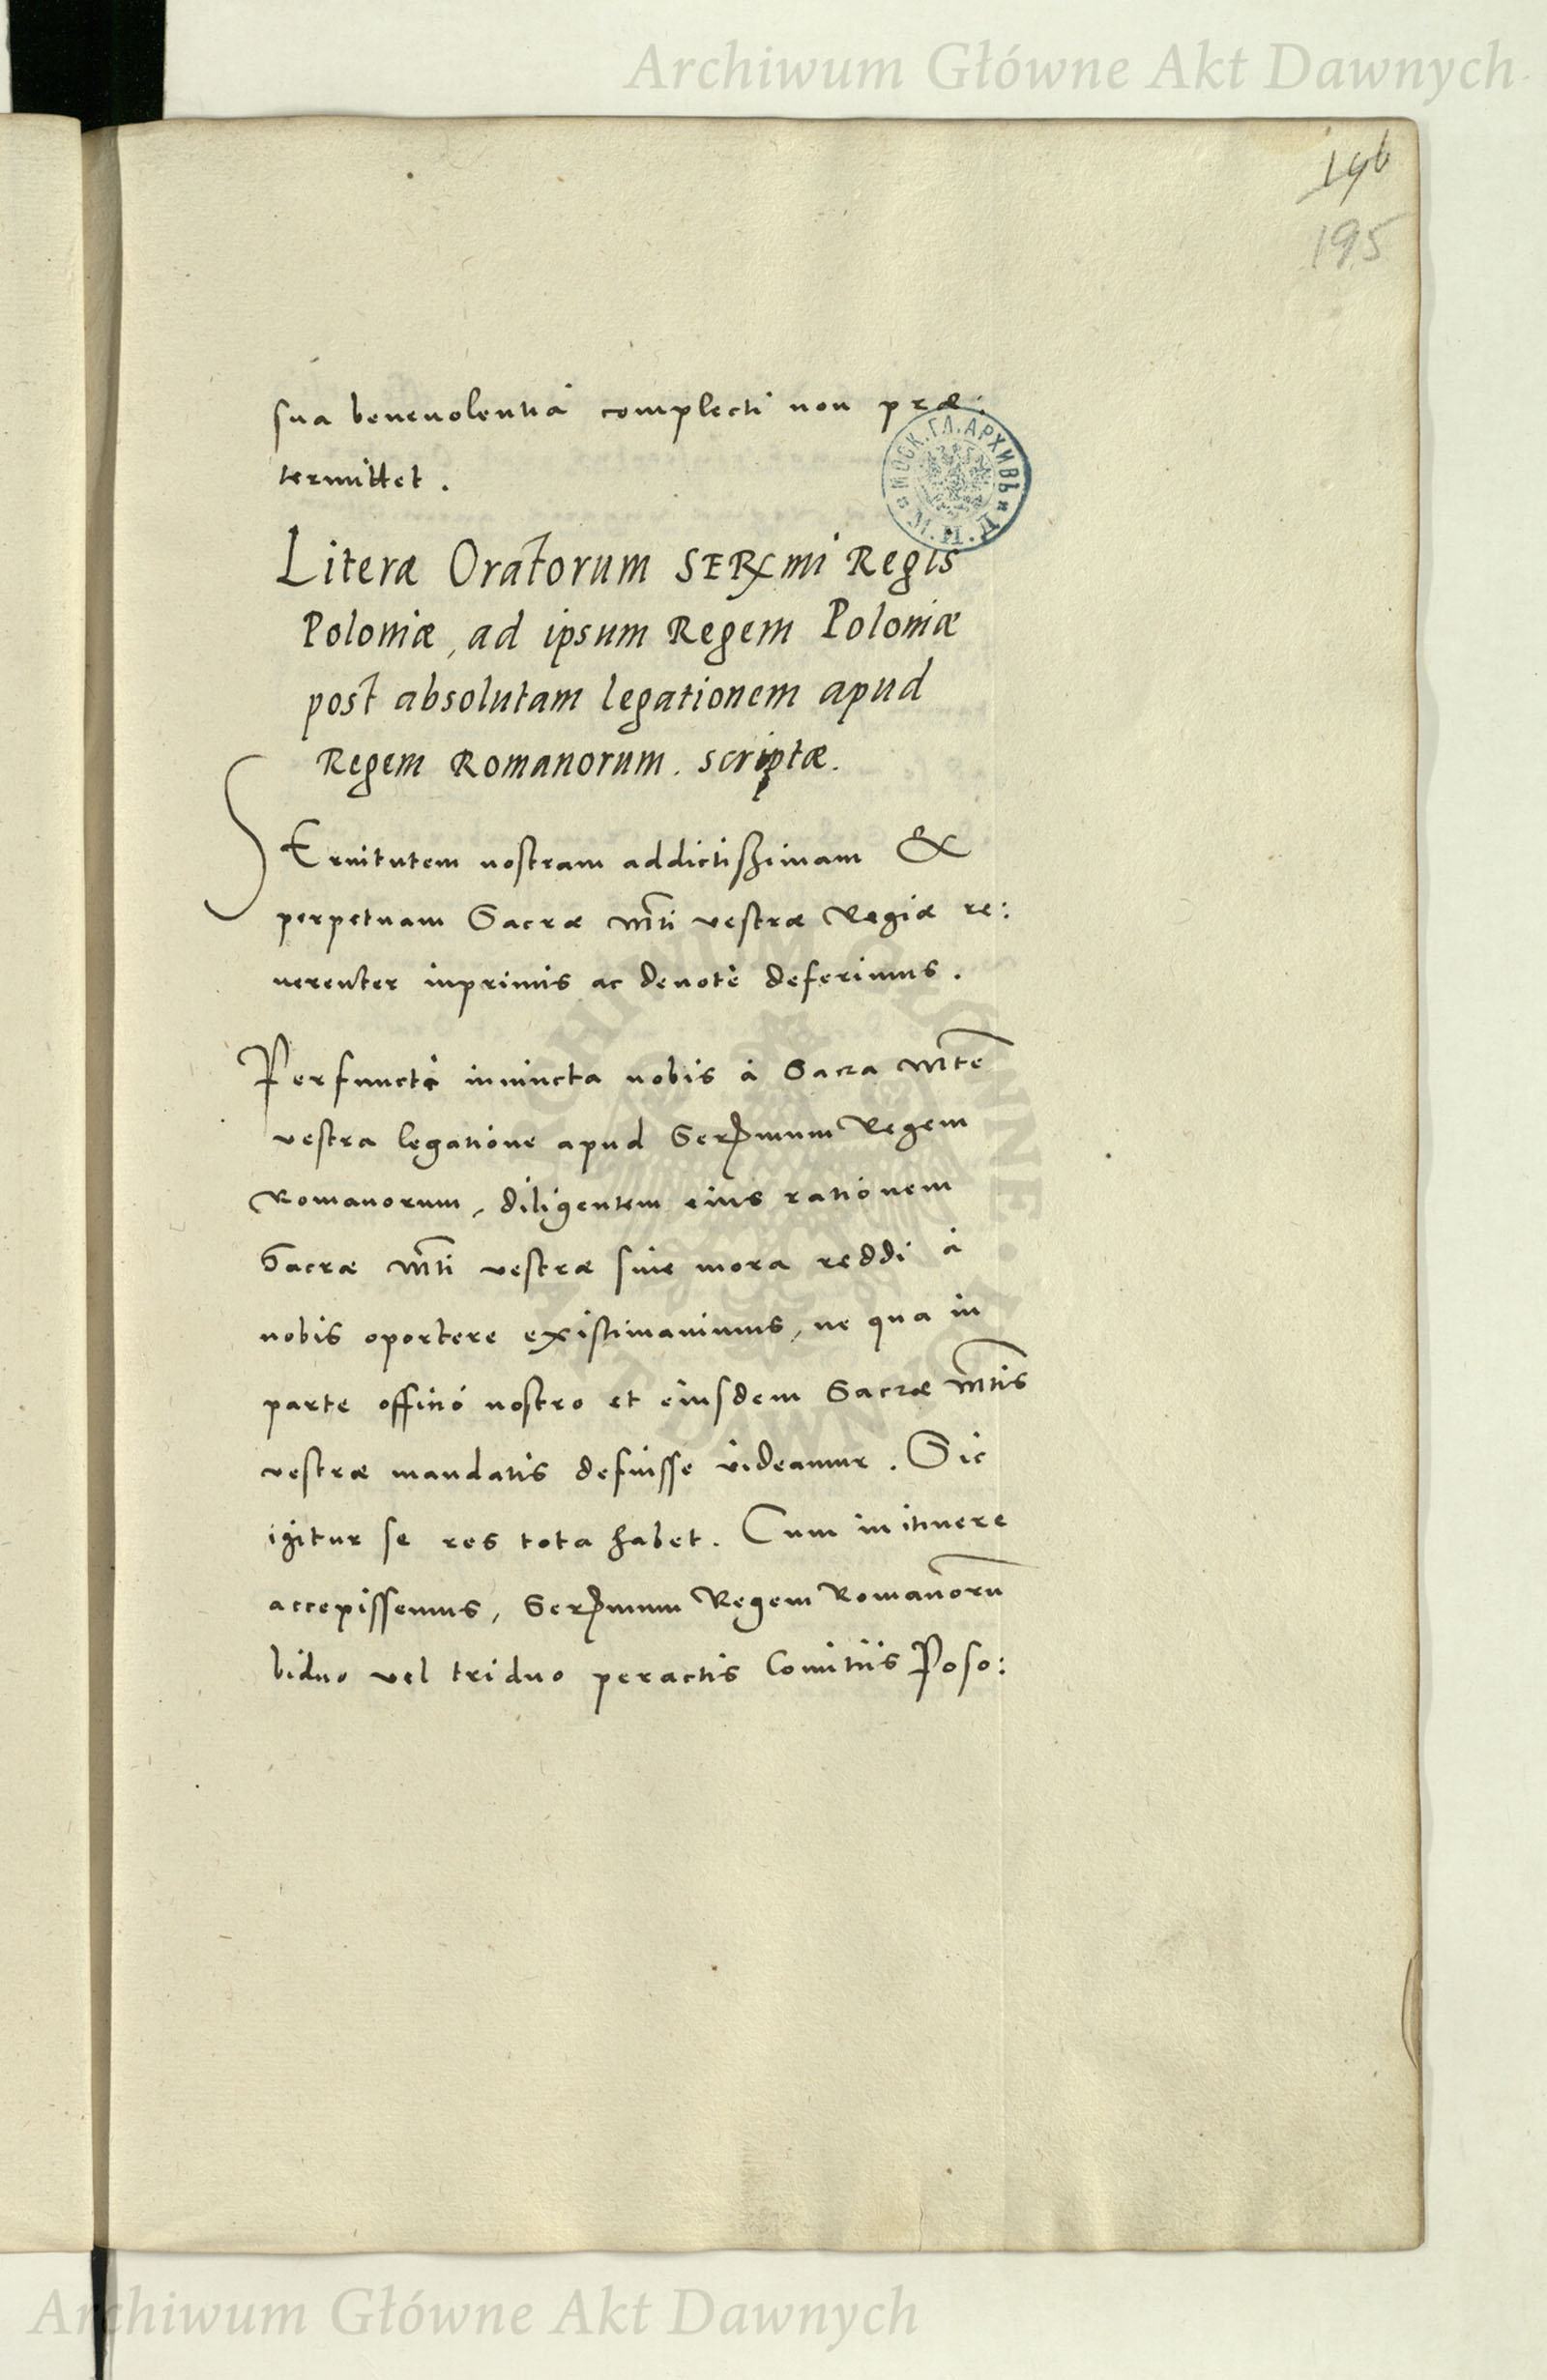 Archiwum Główne Akt Dawnych
196
195
sua beneuolentia complecti non præ:
termittet.
МОСК. ГЛ. АРХИВЪ
М. И. Д.
Literæ Oratorum SERmi Regis
Poloniæ, ad ipsum Regem Poloniæ
post absolutam legationem apud
Regem Romanorum. scriptæ.
SEruitutem nostram addictissimam &
perpetuam Sacræ Mti vestræ Regiæ re:
uerenter inprimis ac deuotè deferimus.
Perfuncti iniuncta nobis à Sacra Mte
vestra legatione apud Sermum Regem
Romanorum, diligentem eius rationem
Sacræ Mti vestræ sine mora reddi à
nobis oportere existimauimus, ne qua in
parte officio nostro et eiusdem Sacræ Mtis
vestræ mandatis defuisse videamur. Sic
igitur se res tota habet. Cum in itinere
accepissemus, Sermum Regem Romanorū
biduo vel triduo peractis Comitiis Poso:
ARCHIWUM GŁÓWNE AKT DAWNYCH
Archiwum Główne Akt Dawnych